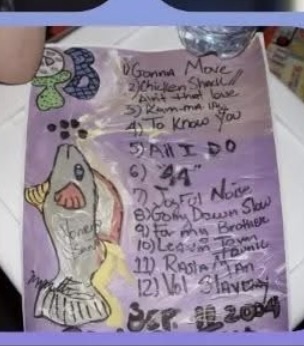 1) Gonna Move
2) Chicken Shack
Ain't that love
4) To Know You
5) All I DO
6) "44"
7) Joyful Noise
8) Going Down Slow
9) for my Brother
10) Leavin Town
11) Rasta Man
12) No! Slavery
SEP. 11 2004